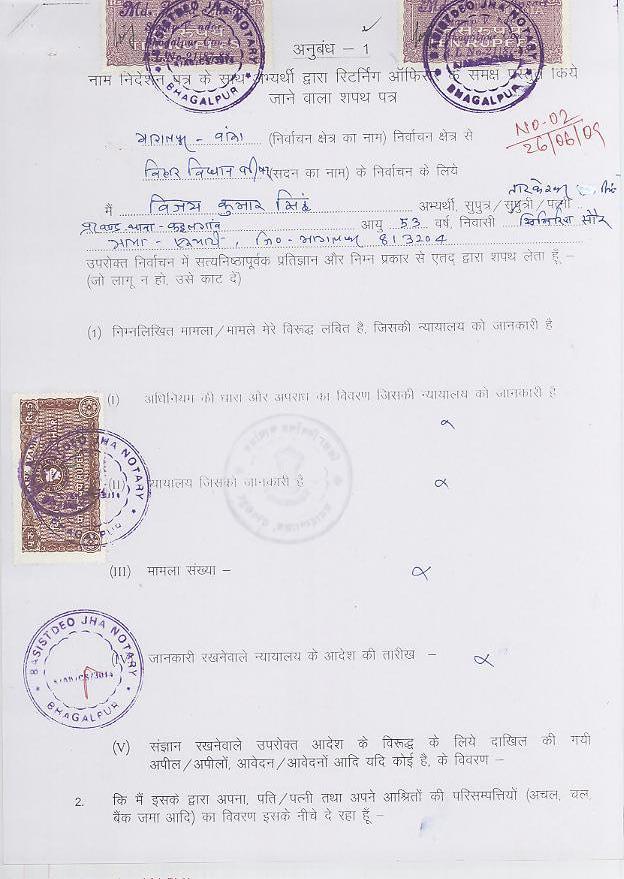 BASISTDEO JHA NOTARY
BHAGALPUR
BASISTDEO JHA NOTARY
BHAGALPUR
अनुबंध – 1
नाम निर्देशन पत्र के साथ अभ्यर्थी द्वारा रिटर्निंग ऑफिसर के समक्ष प्रस्तुत किये
जाने वाला शपथ पत्र
NO-02
26/06/09
भागलपुर - बांका (निर्वाचन क्षेत्र का नाम) निर्वाचन क्षेत्र से
बिहार विधान परिषद (सदन का नाम) के निर्वाचन के लिये
मैं विजय कुमार सिंह अभ्यर्थी, सुपुत्र/सुपुत्री/पत्नी तारकेश्वर सिंह
थाना-कहलगांव आयु 53 वर्ष, निवासी
जि०-भागलपुर 813204
उपरोक्त निर्वाचन में सत्यनिष्ठापूर्वक प्रतिज्ञान और निम्न प्रकार से एतद् द्वारा शपथ लेता हूँ –
(जो लागू न हो, उसे काट दें)
(1) निम्नलिखित मामला/मामले मेरे विरूद्ध लंबित है, जिसकी न्यायालय को जानकारी है
(I) अधिनियम की धारा और अपराध का विवरण जिसकी न्यायालय को जानकारी है
BASISTDEO JHA NOTARY
BHAGALPUR
(II) न्यायालय जिसको जानकारी है
(III) मामला संख्या –
BASISTDEO JHA NOTARY
BHAGALPUR
(IV) जानकारी रखनेवाले न्यायालय के आदेश की तारीख –
(V) संज्ञान रखनेवाले उपरोक्त आदेश के विरूद्ध के लिये दाखिल की गयी
अपील/अपीलों, आवेदन/आवेदनों आदि यदि कोई है, के विवरण –
2. कि मैं इसके द्वारा अपना, पति/पत्नी तथा अपने आश्रितों की परिसम्पत्तियों (अचल, चल,
बैंक जमा आदि) का विवरण इसके नीचे दे रहा हूँ –